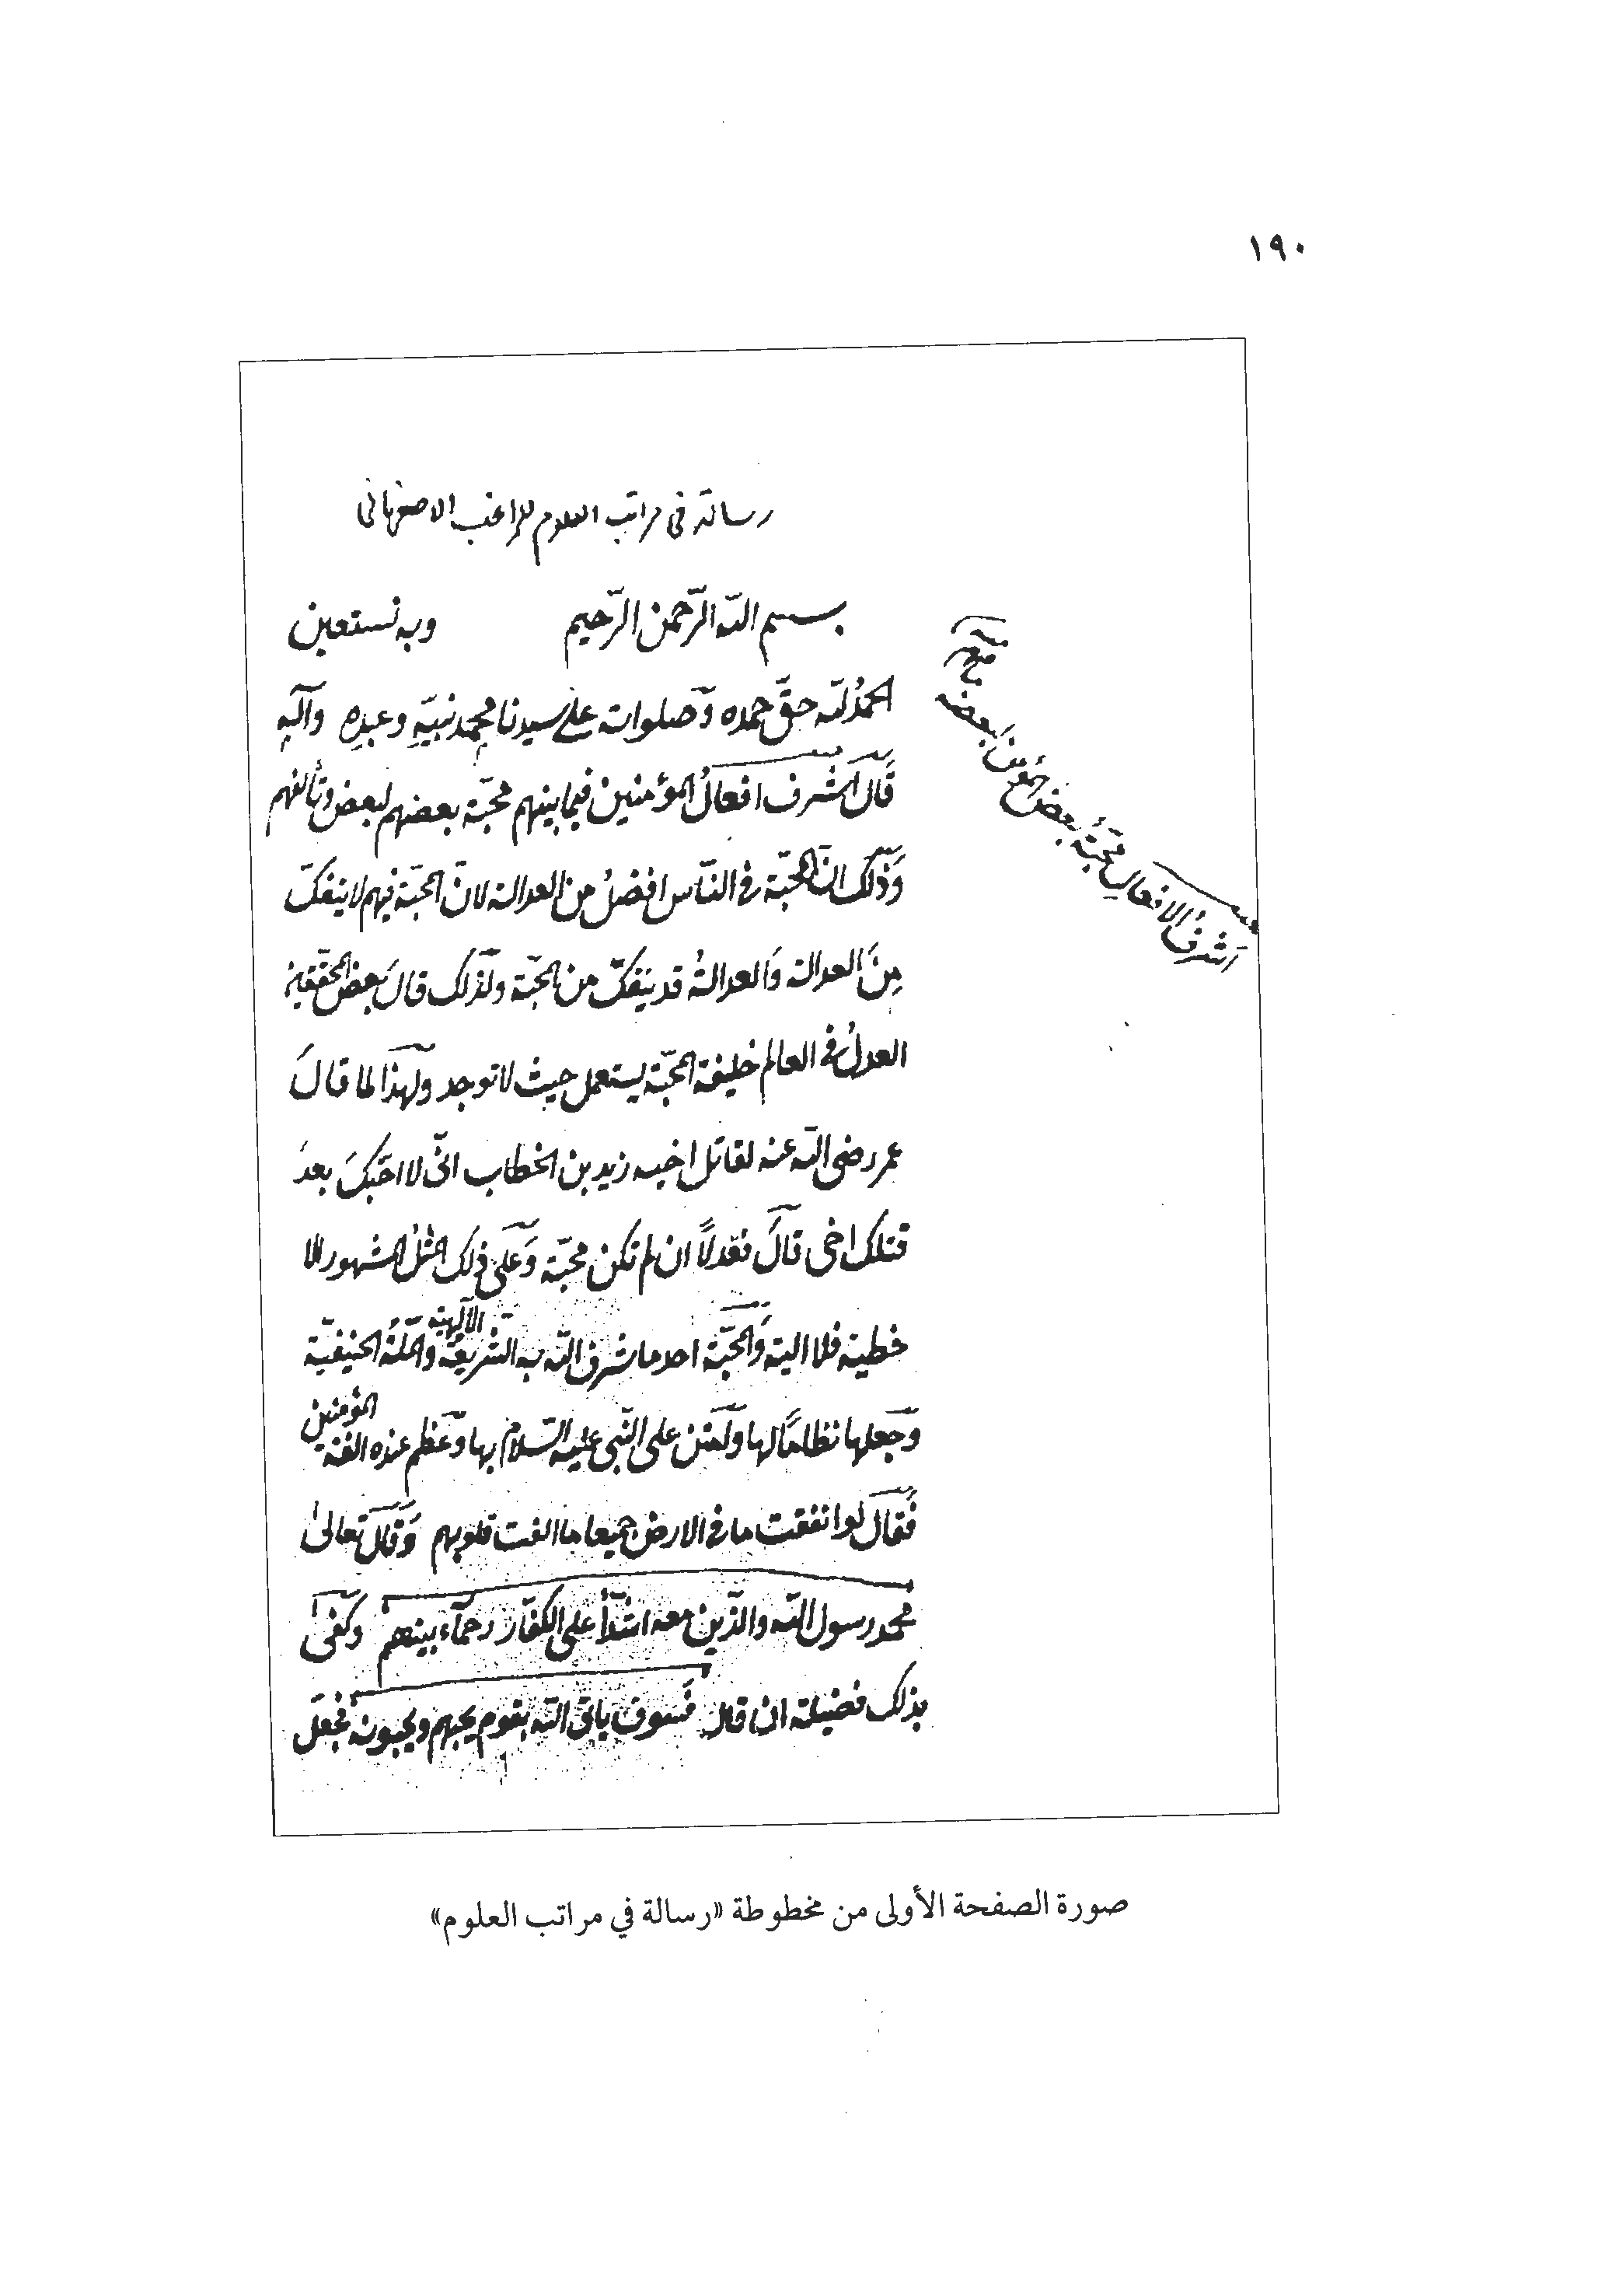 ١٩٠
رسالة في مراتب العلوم للراغب الاصفهانى
بسم الله الرّحمن الرّحيم وبه نستعين
الحمدُ لله حقّ حمده وصلواته على سيدنا محمد نبيّهِ وعبدِه وآلهِ
قَالَ اشرف افعالُ المؤمنين فيما بينهم محبّة بعضهم لبعض وتألفهم
وَذلك ان المحبّة فى النّاس افضلُ من العدالة لانّ المحبّة فيهم لا ينفكّ
مِنَ العدالة وَالعدالةُ قد ينفكّ من المحبّة ولذلك قالَ بعض المحققين
العدلُ فى العالم خليفة المحبّة يستعمل حيث لا توجد ولهذا لما قالَ
عمر رضى الله عنه لقاتل اخيه زيد بن الخطاب انّى لا احبّكَ بعدَ
قتلك اخى قالَ فعدلاً ان لم تكن محبّة وَعلى ذلك المثلُ المشهور الا
حظية فلا الية وَالمحبّة احد ما شرف الله به الشّريعة الآلهية والملّةُ الحنيفيّة
وجعلها نظاماً لها ولمتن على النّبى عليه السّلام بها وعظم عنده الفة المؤمنين
فقالَ لو انفقت ما فى الارض جميعا ما الفت قلوبهم وَقالَ تعالىٰ
محمد رسول الله والذّين معه اشدّأ على الكفّار رحمآء بينهم وكفىٰ
بذلك فضيلة ان قال فسوف ياتى الله بقوم يحبهم ويحبونه فجعل
اشرفُ الافعالِ محبّةُ بعض المؤمنَ بعضه
صورة الصفحة الأولى من مخطوطة «رسالة في مراتب العلوم»